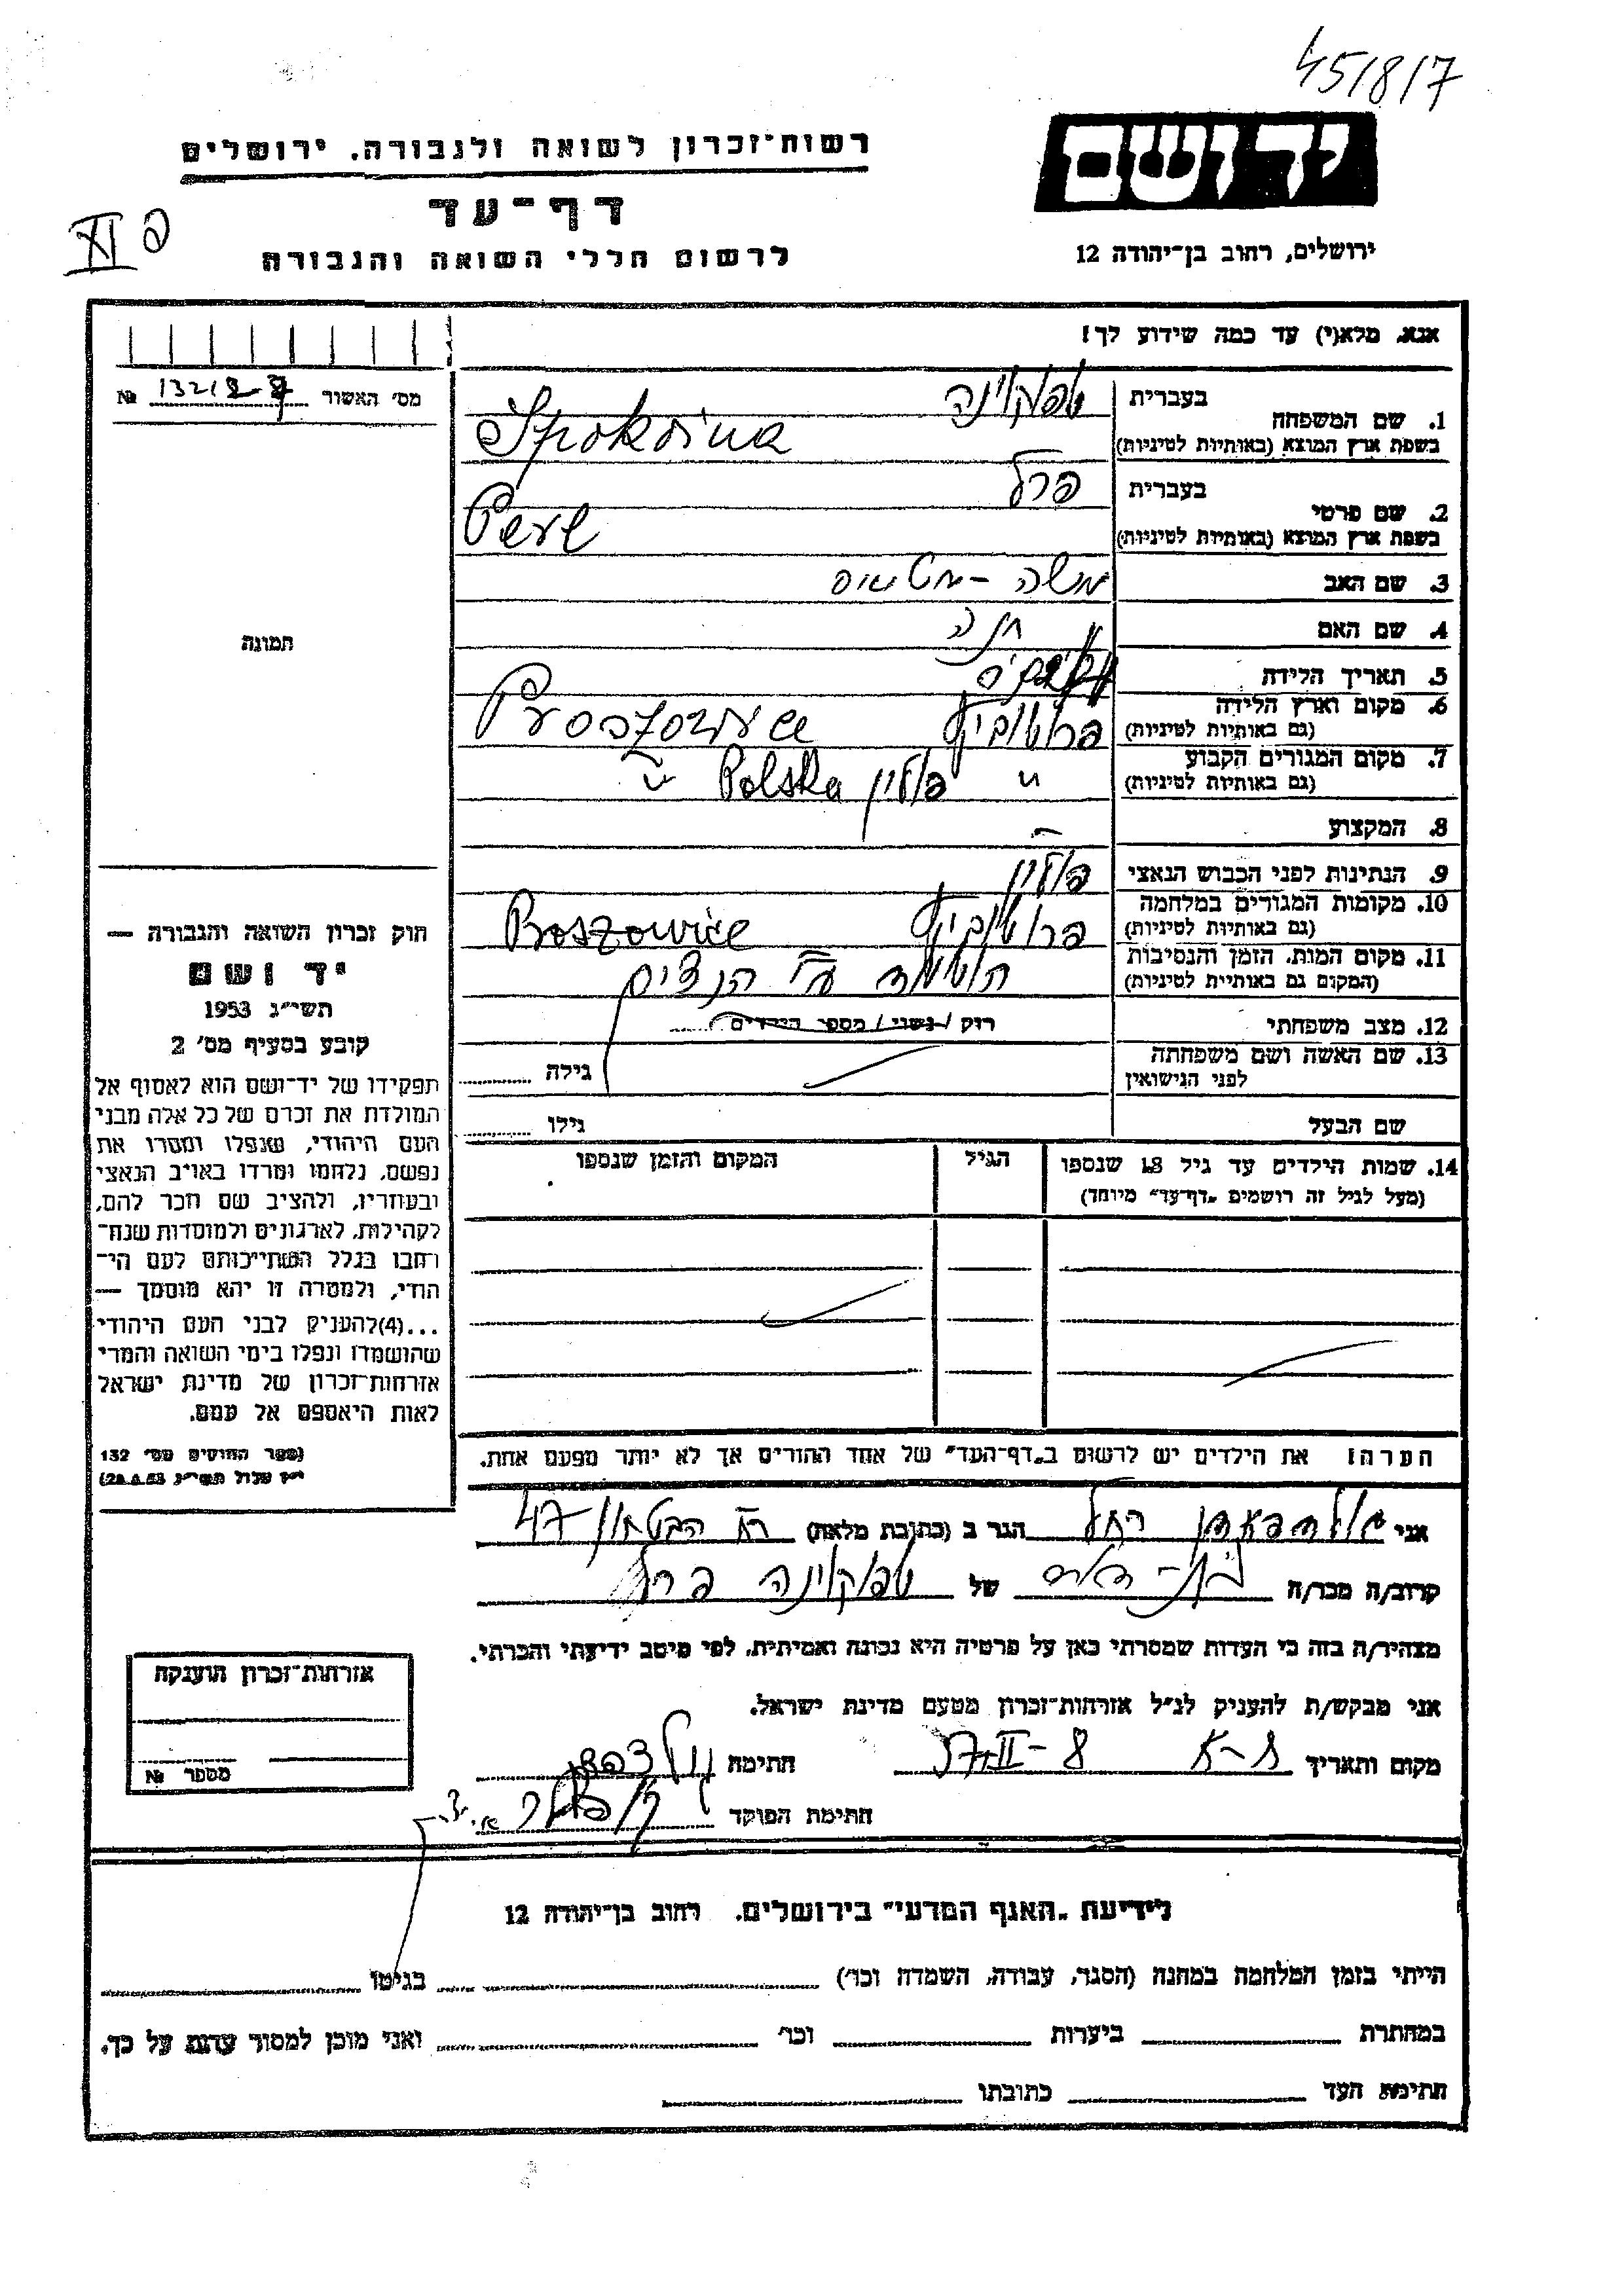 45/8/7
יד ושם
רשות־זכרון לשואה ולגבורה, ירושלים
דף־עד
פ XI
לרשום חללי השואה והגבורה
ירושלים, רחוב בן־יהודה 12
אנא, מלא(י) עד כמה שידוע לך!
מס׳ האשור № 132
1. שם המשפחה
בעברית שפוקוינה
בשפת ארץ המוצא (באותיות לטיניות) Spokoina
2. שם פרטי
בעברית פרל
בשפת ארץ המוצא (באותיות לטיניות) Perl
3. שם האב משה -
4. שם האם חנה
תמונה
5. תאריך הלידה
6. מקום וארץ הלידה
(גם באותיות לטיניות) פרושוביץ Proszowice
7. מקום המגורים הקבוע
(גם באותיות לטיניות) " פולין Polska "
8. המקצוע –
9. הנתינות לפני הכבוש הנאצי פולין
10. מקומות המגורים במלחמה
(גם באותיות לטיניות) פרושוביץ Proszowice
11. מקום המות, הזמן והנסיבות
(המקום גם באותיות לטיניות) הושמד ע״י הנצים
12. מצב משפחתי רוק / נשוי / מספר הילדים
13. שם האשה ושם משפחתה
לפני הנישואין גילה
שם הבעל גילו
14. שמות הילדים עד גיל 18 שנספו
(מעל לגיל זה רושמים „דף־עד״ מיוחד)
הגיל
המקום והזמן שנספו
חוק זכרון השואה והגבורה —
יד ושם
תשי״ג 1953
קובע בסעיף מס׳ 2
תפקידו של יד־ושם הוא לאסוף אל
המולדת את זכרם של כל אלה מבני
העם היהודי, שנפלו ומסרו את
נפשם, נלחמו ומרדו באויב הנאצי
ובעוזריו, ולהציב שם וזכר להם,
לקהילות, לארגונים ולמוסדות שנח־
רבו בגלל השתייכותם לעם הי־
הודי, ולמטרה זו יהא מוסמך —
...(4)להעניק לבני העם היהודי
שהושמדו ונפלו בימי השואה והמרי
אזרחות־זכרון של מדינת ישראל
לאות היאספם אל עמם.
(ספר החוקים מס׳ 132
י״ז אלול תשי״ג 28.8.53)
הערה! את הילדים יש לרשום ב„דף־העד״ של אחד ההורים אך לא יותר מפעם אחת.
אני רחל הגר ב (כתובת מלאה) רח הבטחון 47
קרוב/ה מכר/ה של שפוקוינה פרל
מצהיר/ה בזה כי העדות שמסרתי כאן על פרטיה היא נכונה ואמיתית, לפי מיטב ידיעתי והכרתי.
אני מבקש/ת להעניק לנ״ל אזרחות־זכרון מטעם מדינת ישראל.
מקום ותאריך ת-א 8-II-57 חתימה
חתימת הפוקד
אזרחות־זכרון הוענקה
מספר №
לידיעת „האגף המדעי״ בירושלים, רחוב בן־יהודה 12
הייתי בזמן המלחמה במחנה (הסגר, עבודה, השמדה וכו׳) בגיטו
במחתרת ביערות וכו׳ ואני מוכן למסור עדות על כך.
חתימת העד כתובתו